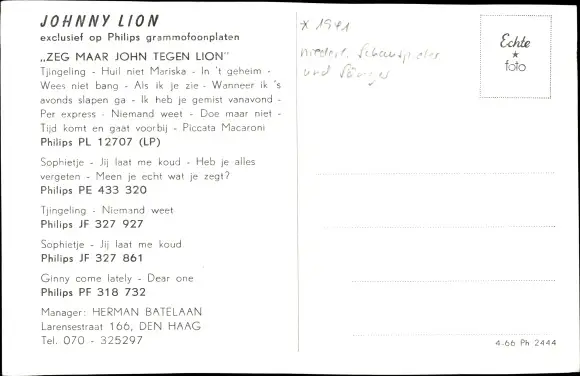 JOHNNY LION
exclusief op Philips grammofoonplaten
„ZEG MAAR JOHN TEGEN LION"
Tjingeling - Huil niet Mariska - In 't geheim -
Wees niet bang - Als ik je zie - Wanneer ik 's
avonds slapen ga - Ik heb je gemist vanavond -
Per express - Niemand weet - Doe maar niet -
Tijd komt en gaat voorbij - Piccata Macaroni
Philips PL 12707 (LP)
Sophietje - Jij laat me koud - Heb je alles
vergeten - Meen je echt wat je zegt?
Philips PE 433 320
Tjingeling - Niemand weet
Philips JF 327 927
Sophietje - Jij laat me koud
Philips JF 327 861
Ginny come lately - Dear one
Philips PF 318 732
Manager: HERMAN BATELAAN
Larensestraat 166, DEN HAAG
Tel. 070 - 325297
* 1941
niederl. Schauspieler
und Sänger
Echte
★
foto
4-66 Ph 2444